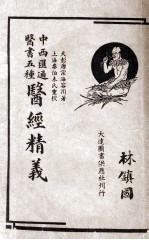 中西匯通
醫書五種
醫經精義
天彭唐宗海容川著
上海秦伯未氏重校
林鎮國
大達圖書供應社刊行